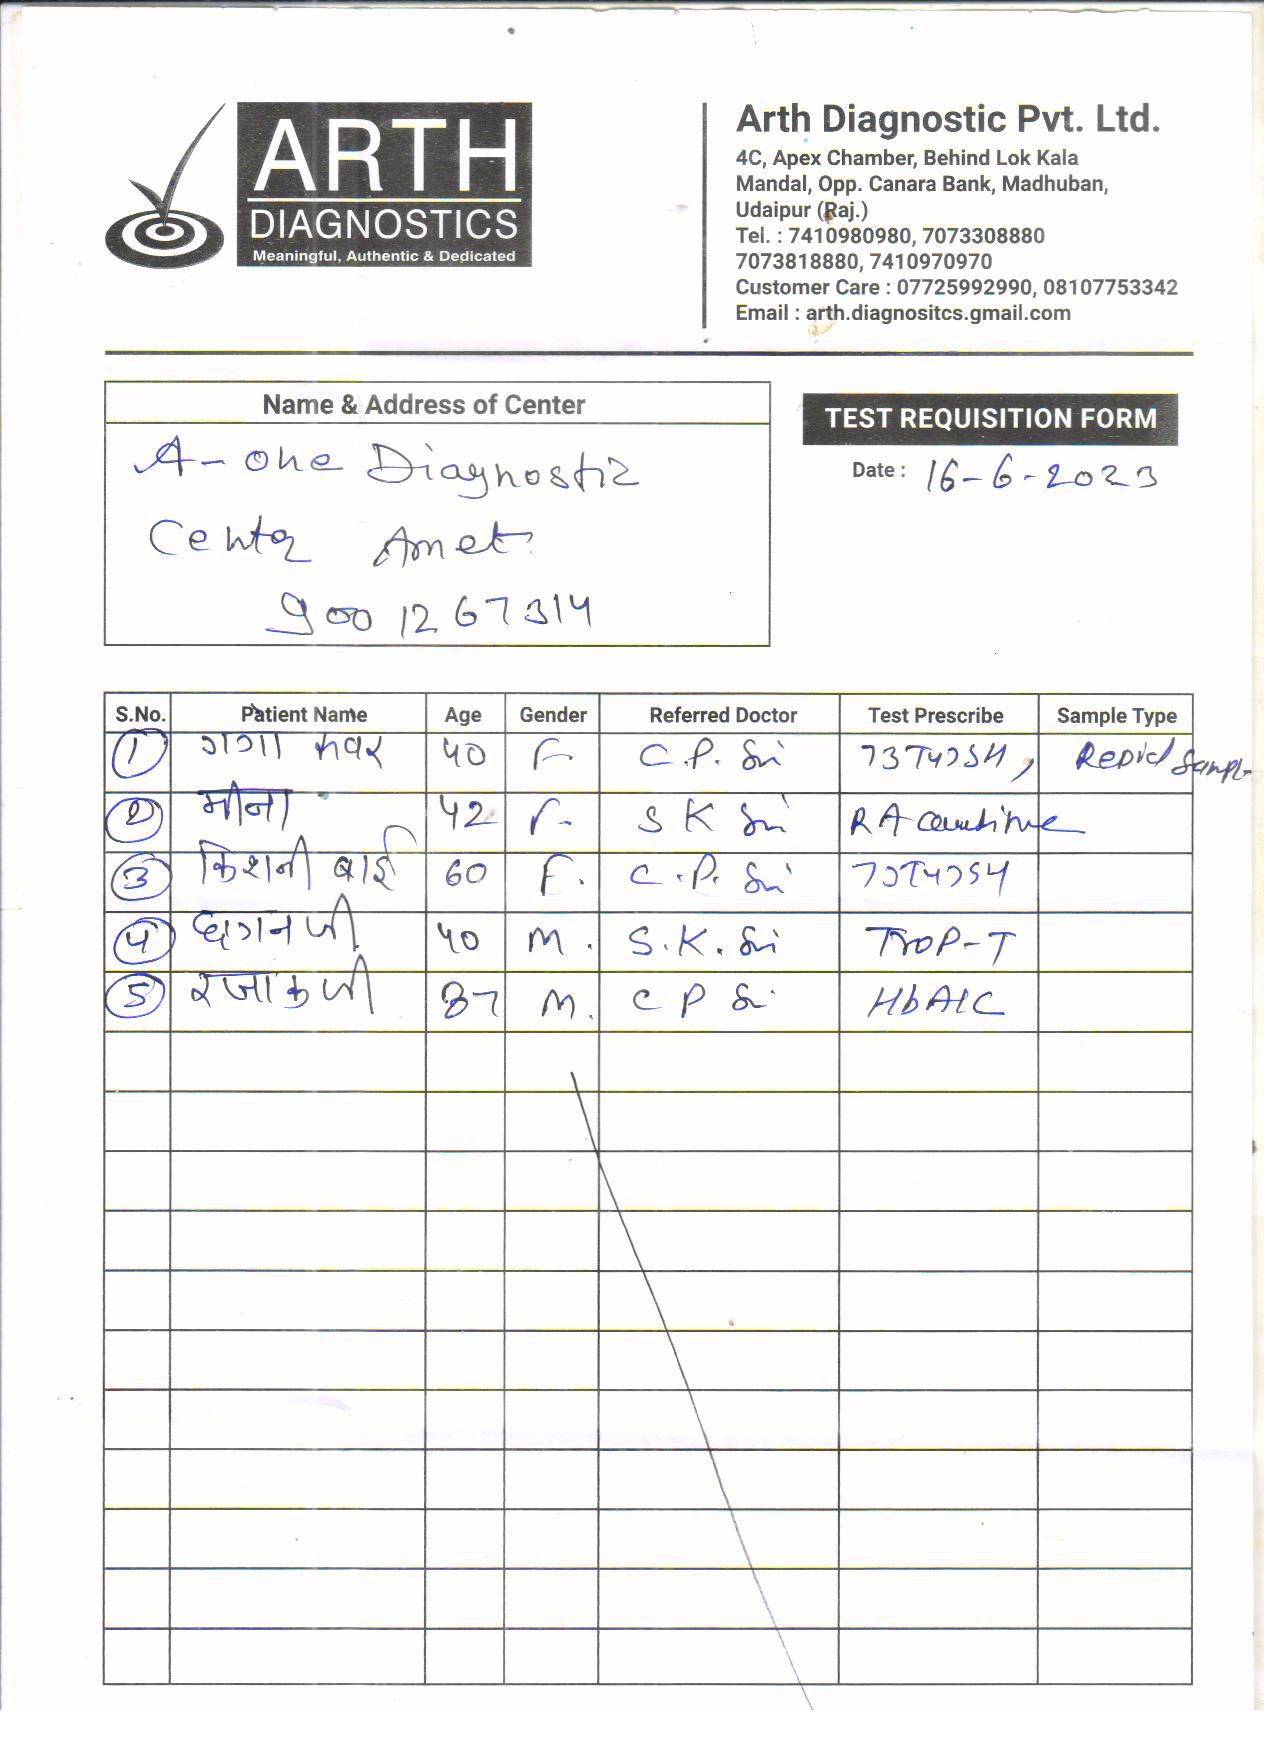 ARTH
DIAGNOSTICS
Meaningful, Authentic & Dedicated
Arth Diagnostic Pvt. Ltd.
4C, Apex Chamber, Behind Lok Kala
Mandal, Opp. Canara Bank, Madhuban,
Udaipur (Raj.)
Tel. : 7410980980, 7073308880
7073818880, 7410970970
Customer Care : 07725992990, 08107753342
Email : arth.diagnositcs.gmail.com
Name & Address of Center
A-one Diagnostic
Center Amet
9001267314
TEST REQUISITION FORM
Date : 16-6-2023
S.No. Patient Name Age Gender Referred Doctor Test Prescribe Sample Type
1 40 F C.P. Sir T3T4TSH,
2 मीना 42 F. S K Sir RA
3 किशनी बाई 60 F. C.P. Sir T3T4TSH
4 छगन जी 40 M. S.K. Sir TROP-T
5 रजाक जी M. C P Sir HbA1C